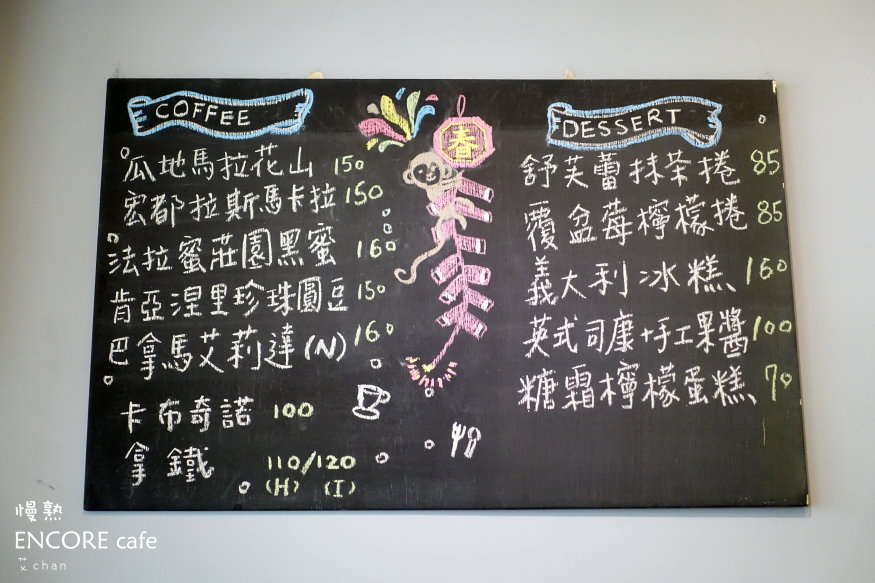 COFFEE
瓜地馬拉花山 150
宏都拉斯馬卡拉 150
法拉蜜莊園黑蜜 160
肯亞涅里珍珠圓豆 150
巴拿馬艾莉達(N) 160
卡布奇諾 100
拿鐵 110/120
(H) (I)
春
DESSERT
舒芙蕾抹茶捲 85
覆盆莓檸檬捲 85
義大利冰糕 160
英式司康+手工果醬 100
糖霜檸檬蛋糕 70
慢熟
ENCORE cafe
艾chan